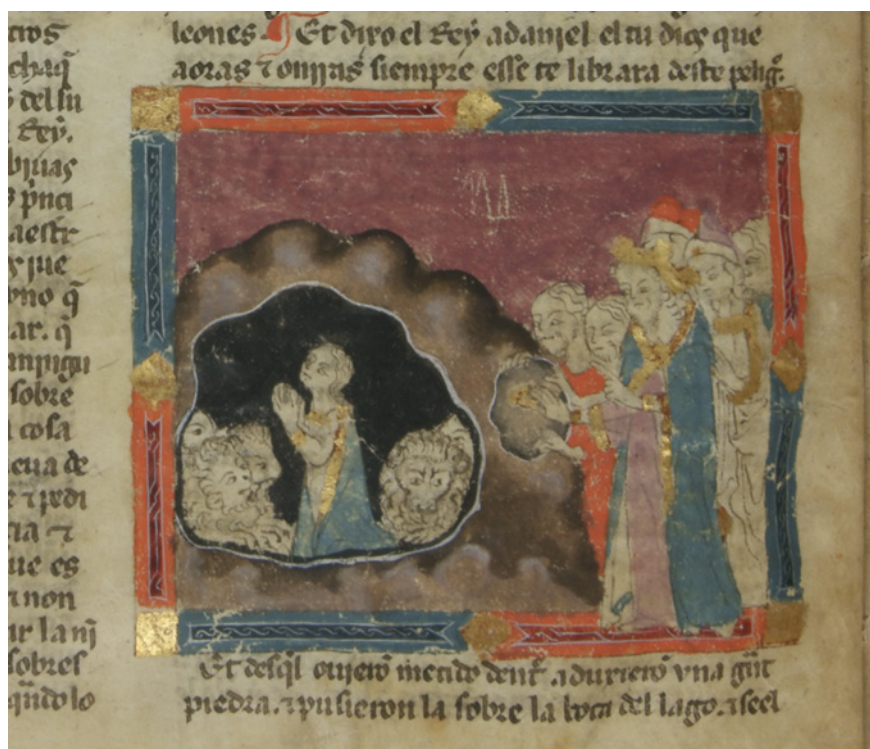 nos
chaq̃
del su
Rey.
bjuas
p̃nci
aestr
que
yno q̃
ar. q̃
sobre
cosa
eua de
e ⁊ pedi
cia ⁊
ue es
a non
ur la nj̃
sobres
qũdo lo
leones. ¶ Et dixo el Rey a daniel el tu dios que
aoras ⁊ onrras siempre esse te librara deste pelig̃.
Et desq̃l ouierõ metido dent̃. aduxierõ vna g̃nt
piedra. ⁊ pusieron la sobre la boca del lago. ⁊ seel